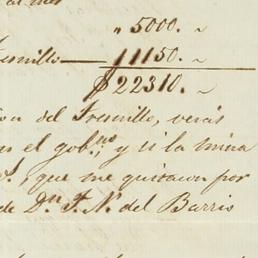 al mes
" 5000. ~
Fresnillo — 11150. ~
$ 22310. ~
del Fresnillo, verás
el gob.no, y si la mina
que me quitaron por
de Dn. J. N. del Barrio